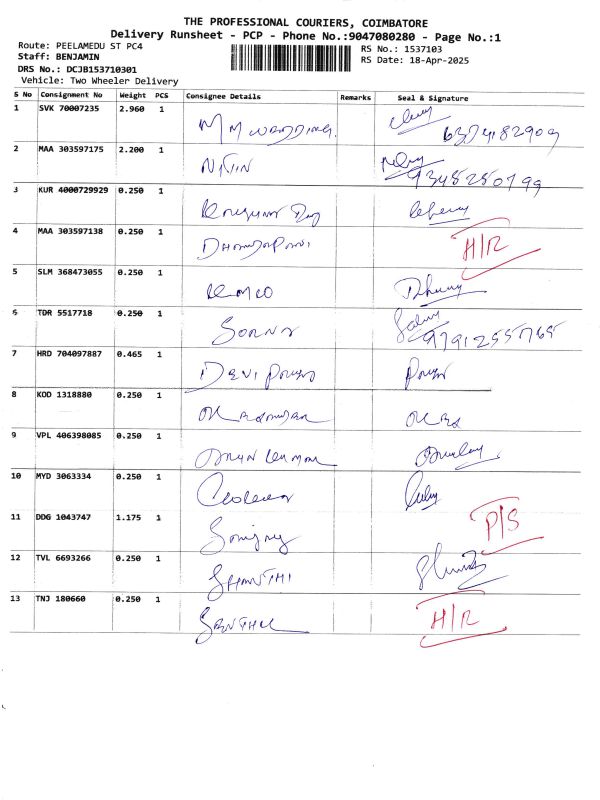 THE PROFESSIONAL COURIERS, COIMBATORE
Delivery Runsheet - PCP - Phone No.:9047080280 - Page No.:1
Route: PEELAMEDU ST PC4 RS No.: 1537103
Staff: BENJAMIN RS Date: 18-Apr-2025
DRS No.: DCJB153710301
Vehicle: Two Wheeler Delivery
S No Consignment No Weight PCS Consignee Details Remarks Seal & Signature
1 SVK 70007235 2.960 1 M M WEDDING. 6374182909
2 MAA 303597175 2.200 1 NITIN 9345250799
3 KUR 4000729929 0.250 1
4 MAA 303597138 0.250 1 H/R
5 SLM 368473055 0.250 1
6 TDR 5517718 0.250 1 9791255765
7 HRD 704097887 0.465 1 DEVI
8 KOD 1318880 0.250 1
9 VPL 406398085 0.250 1
10 MYD 3063334 0.250 1
11 DDG 1043747 1.175 1 P/S
12 TVL 6693266 0.250 1 SHANTHI
13 TNJ 180660 0.250 1 SENTHIL H/R